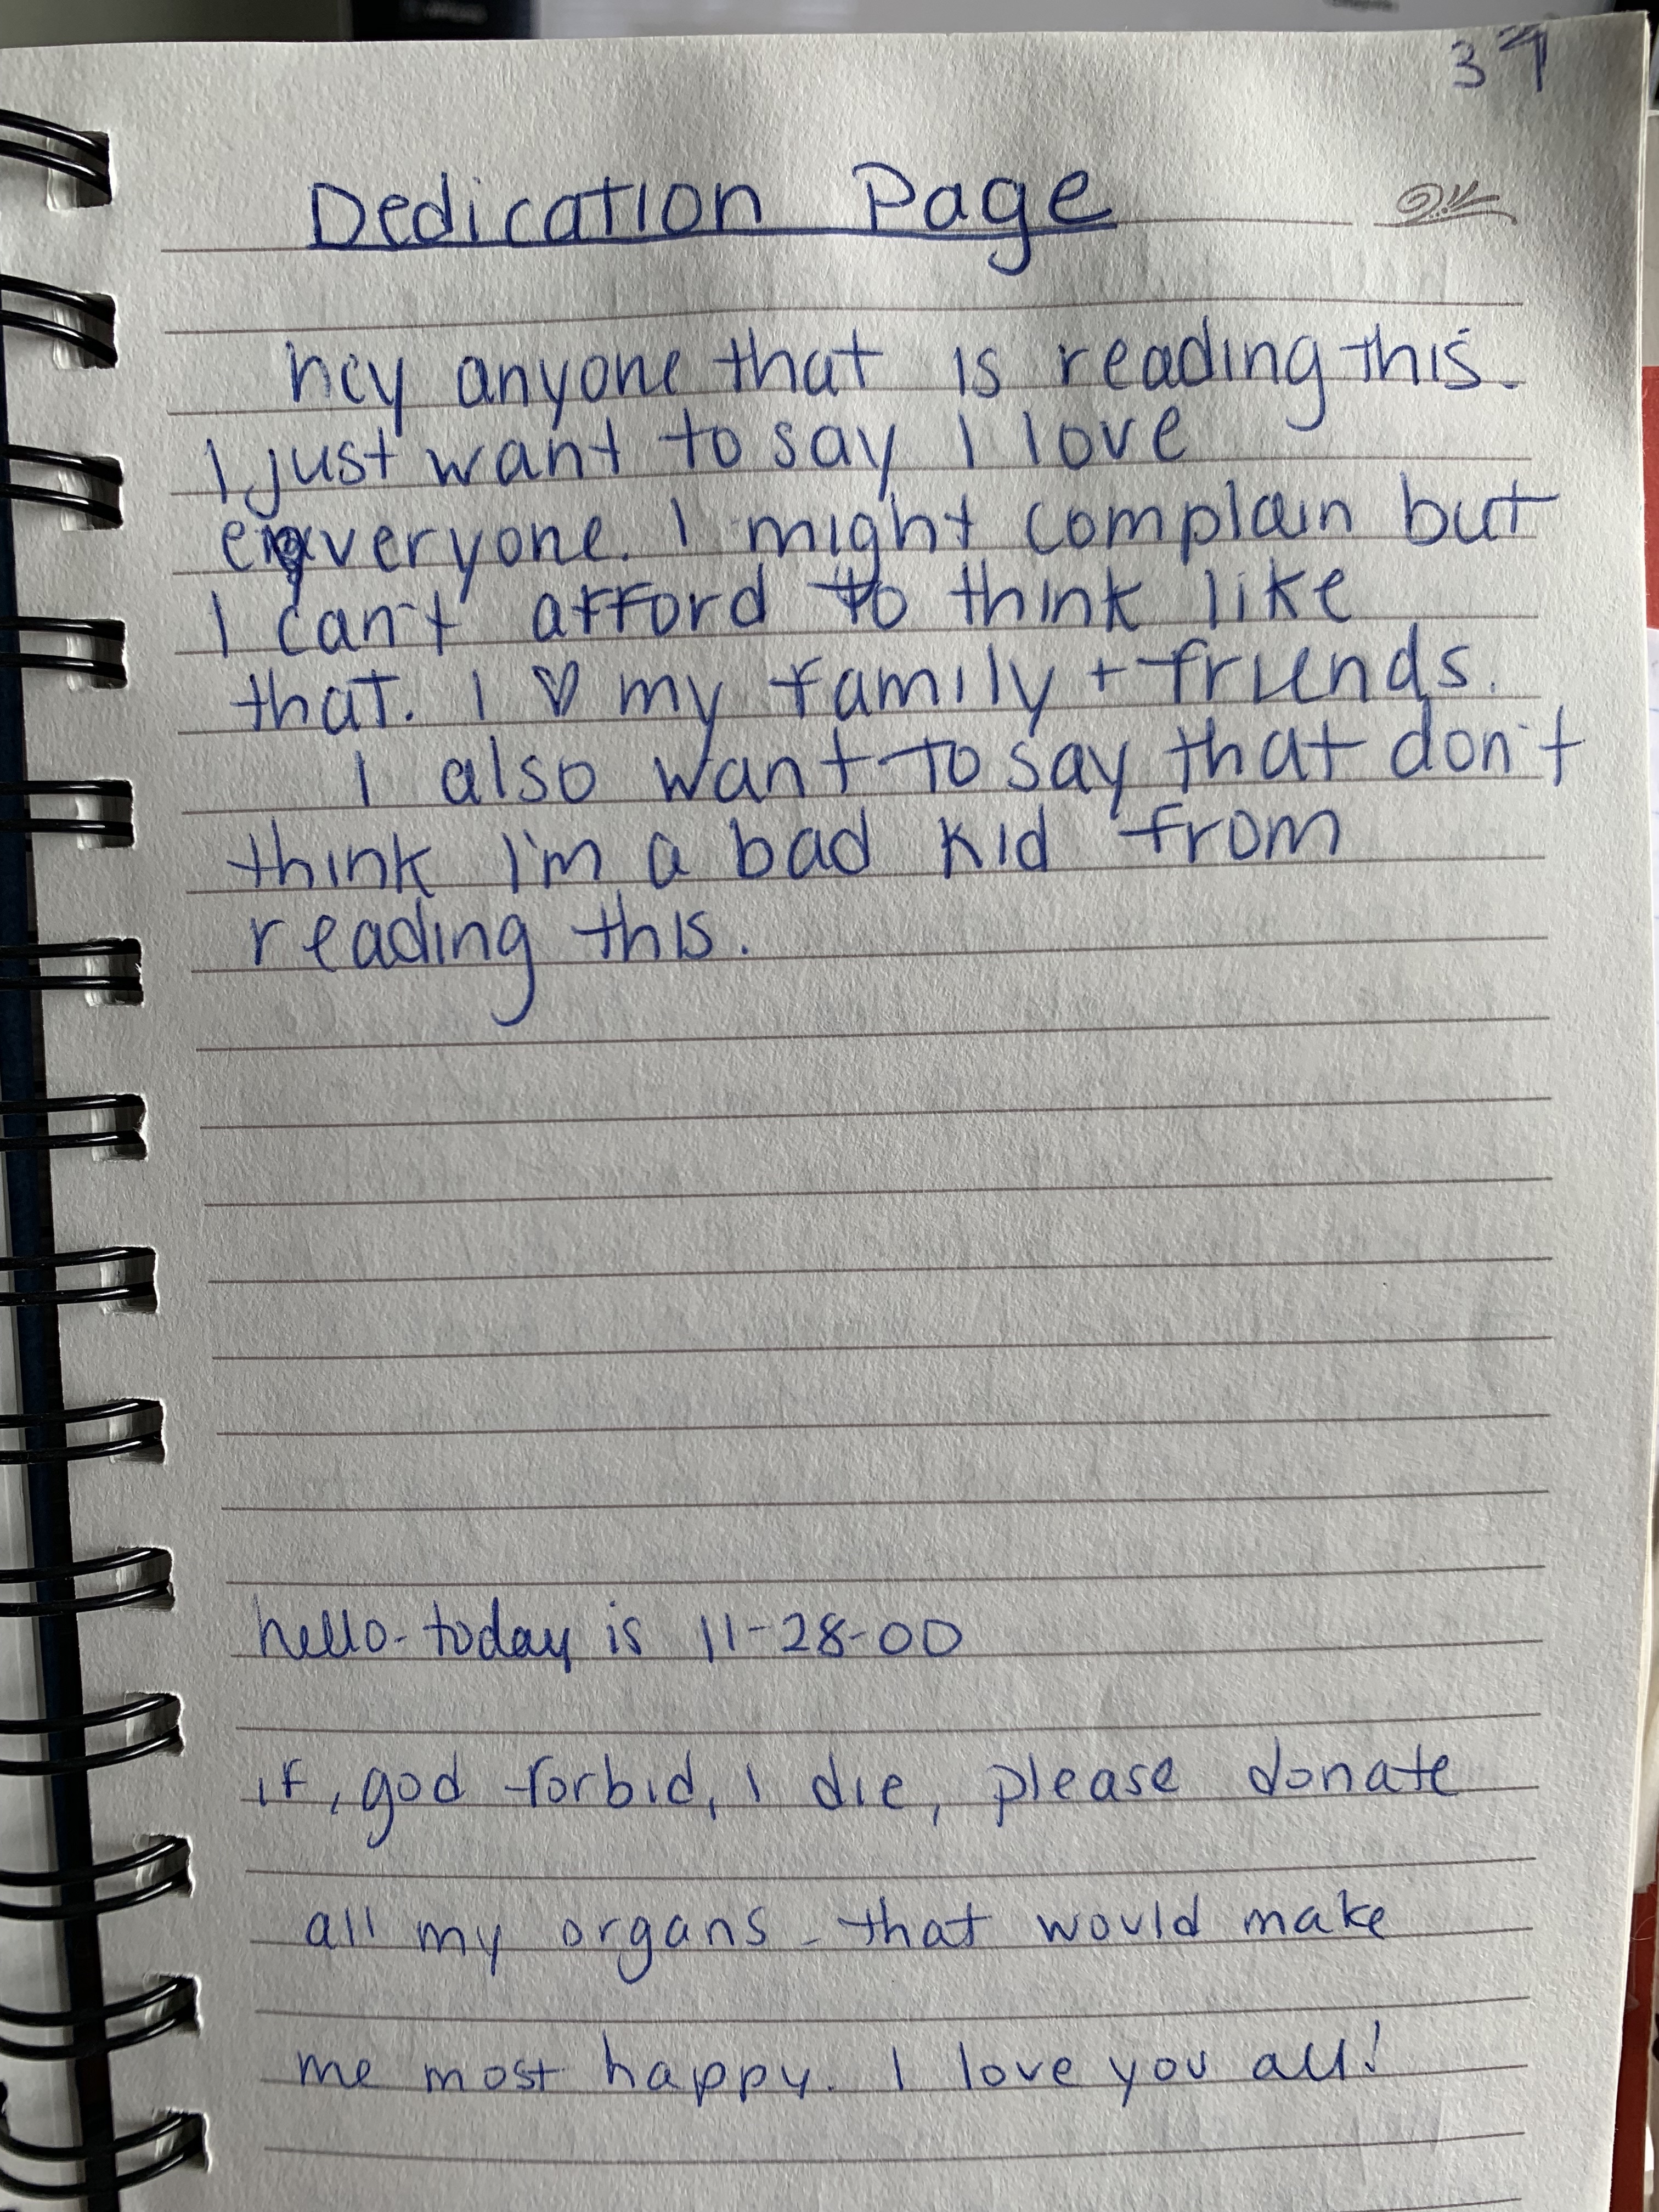 37
Dedication Page
hey anyone that is reading this.
I just want to say I love
everyone. I might complain but
I can't afford to think like
that. I ♡ my family + friends.
I also want to say that don't
think I'm a bad kid from
reading this.
hello-today is 11-28-00
If, god forbid, I die, please donate
all my organs - that would make
me most happy. I love you all!